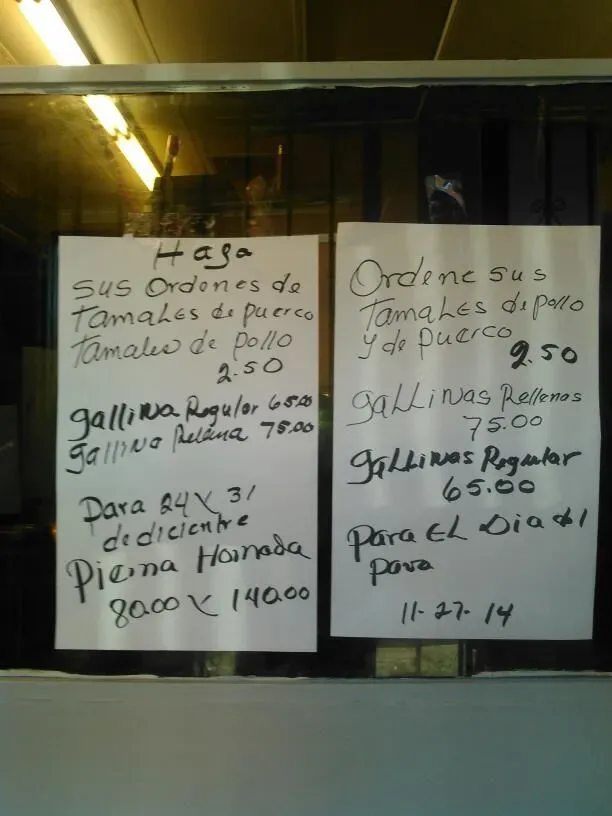 Haga
sus ordenes de
Tamales de puerco
Tamales de pollo
2.50
gallina Regular 65.00
gallina Rellena 75.00
Para 24 Y 31
de diciembre
Pierna Hornada
80.00 Y 140.00
Ordene sus
Tamales de pollo
y de puerco
2.50
gallinas Rellenas
75.00
gallinas Regular
65.00
para EL Dia del
pavo
11-27-14